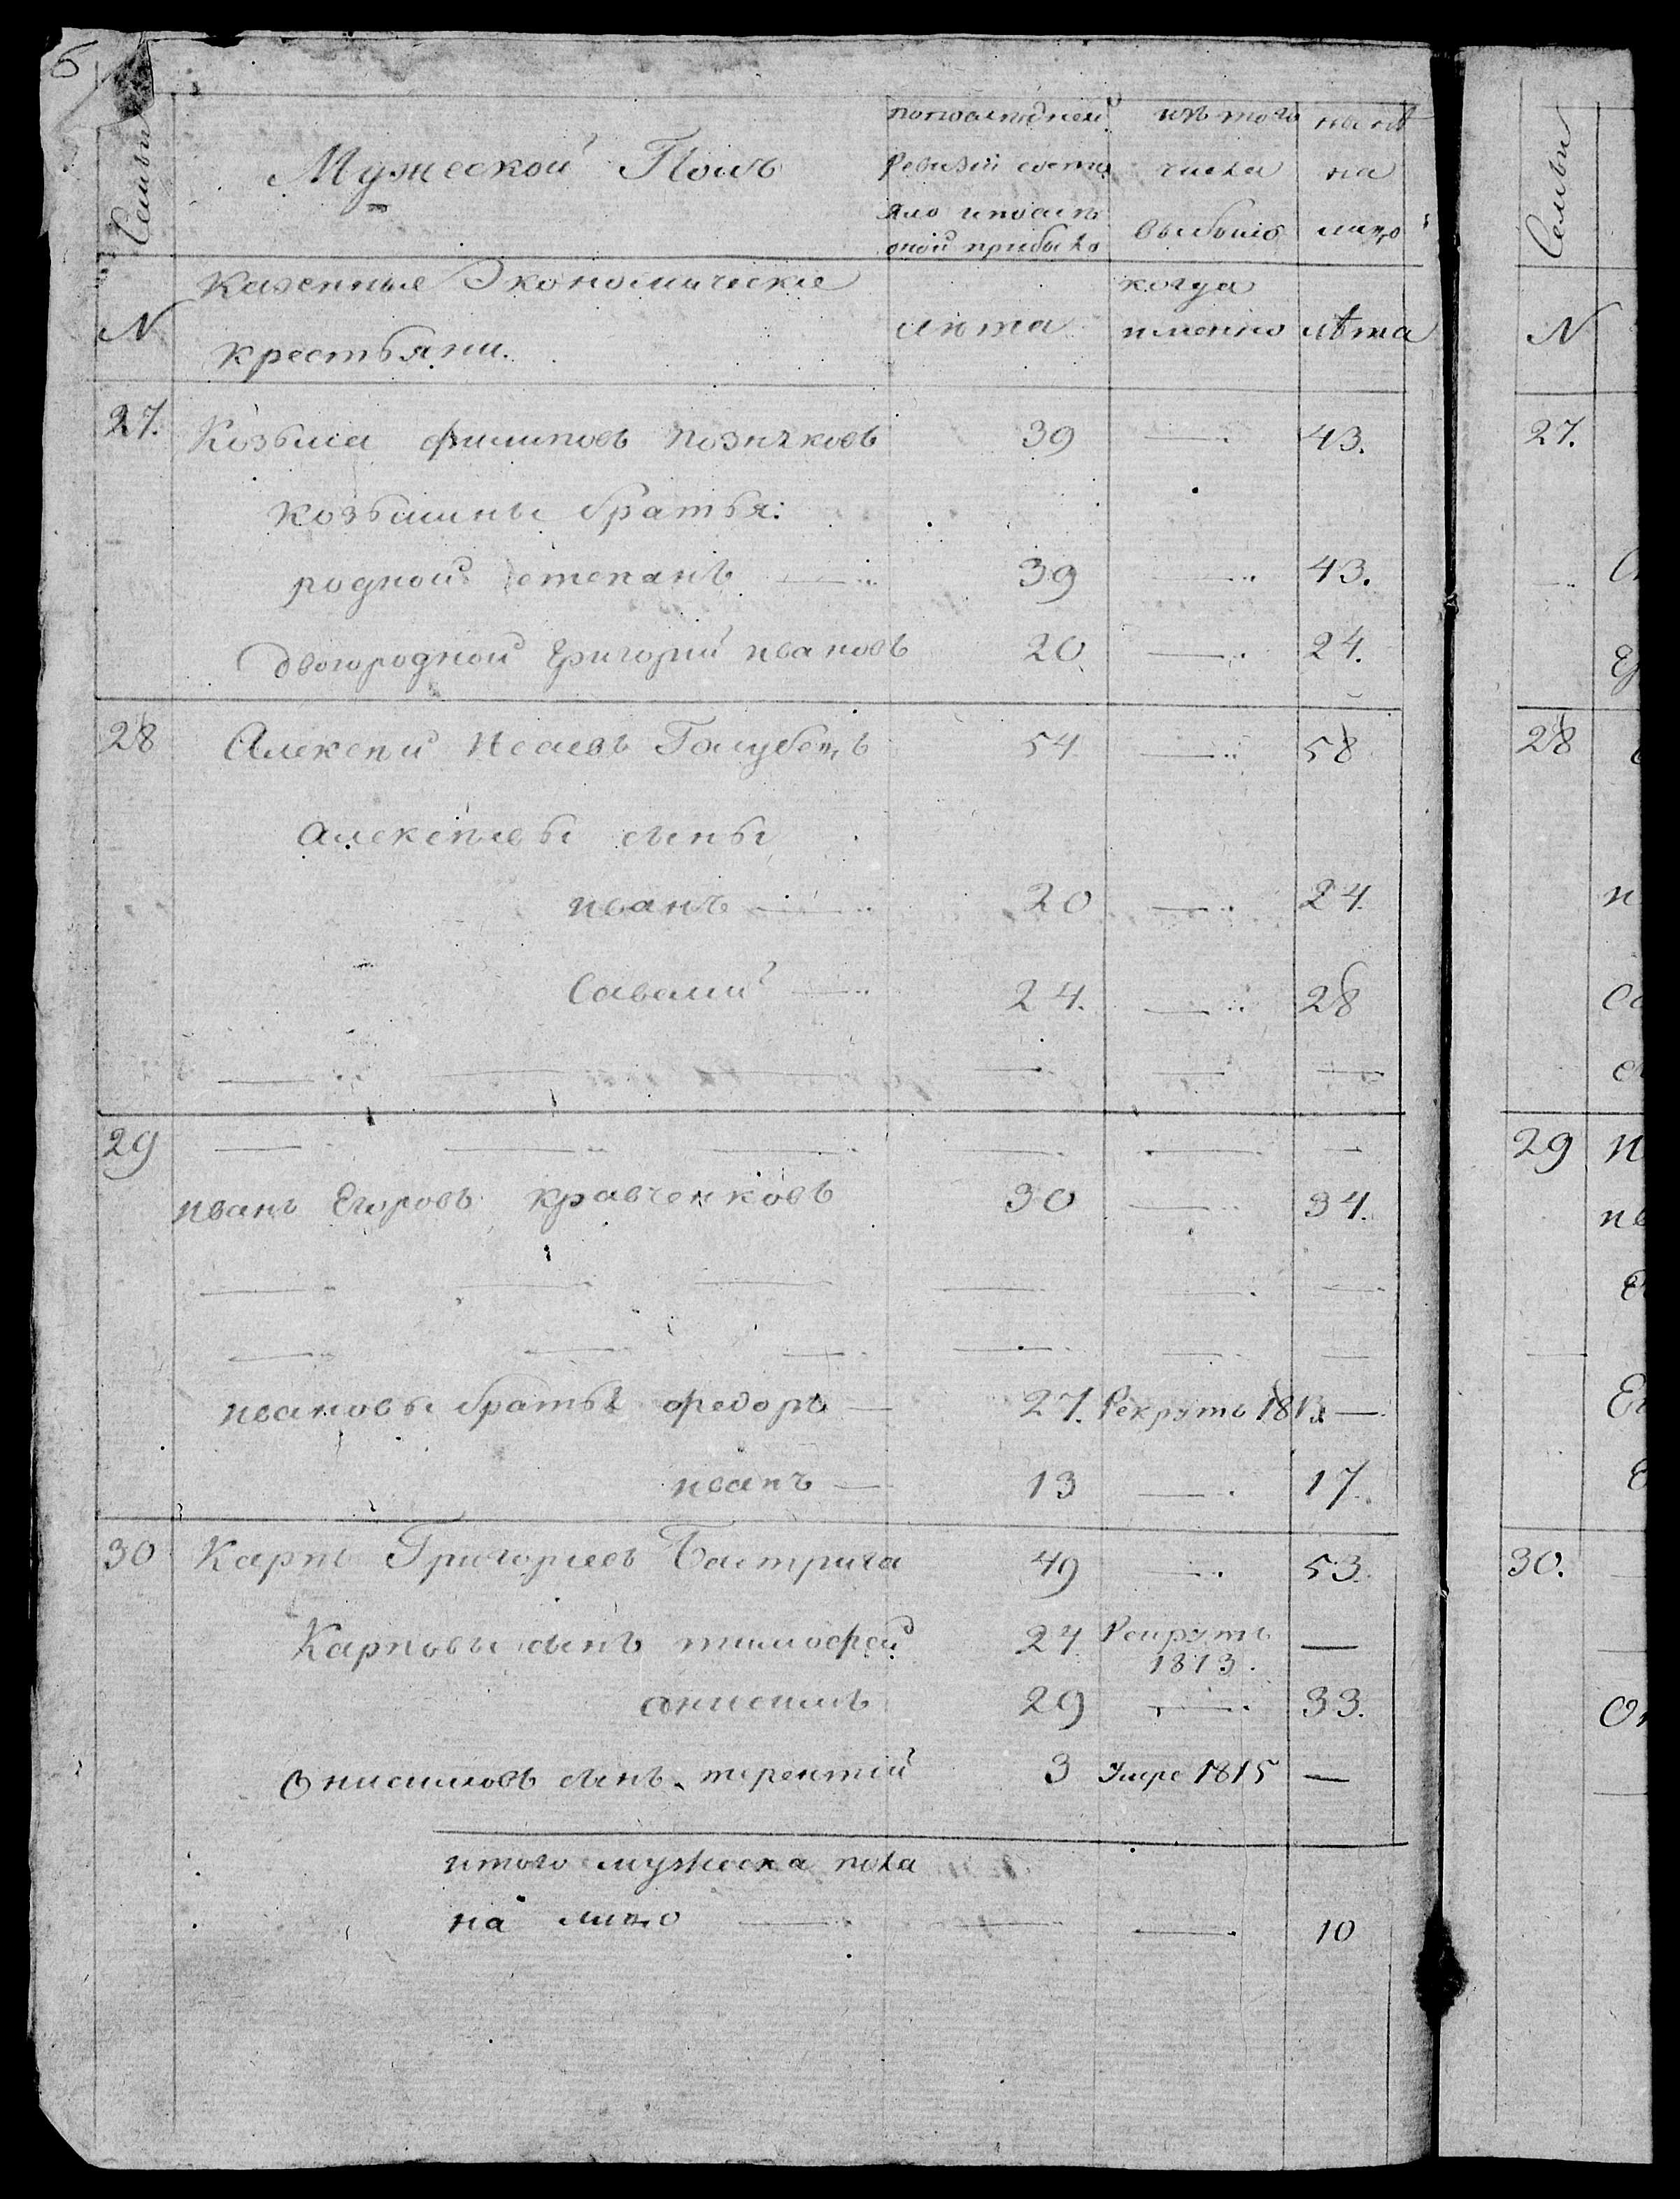 6
Семьи
Мужеской Полъ
попоследней
Ревизiи состо
яло ипосле
оной прибыло
изъ того
числа
выбыло
ныне
на
лицо
N
Казенные Экономическiе
крестьяни.
лета
когда
именно
лѣта
27. Козьма филиповъ позняковъ 39 43.
Козьмины братья:
родной степанъ 39 43.
двоюродной Григорiй ивановъ 20 24.
28 Алексей Исаевъ Голубецъ 54 58
Алексеевы сыны
иванъ 20 24.
Савелiй 24. 28
29
иванъ Егоровъ кравченковъ 30 34.
ивановы братья федоръ 27. Рекрутъ 181
иванъ 13 17.
30 Карпъ Григорiевъ Бастрыга 49 53.
Карповы сынъ тимофей 24 Рекрутъ 1813.
онисимъ 29 33.
Онисимовъ сынъ терентiй 3 Умре 1815
итого мужеска пола
на лицо 10
Семьи
N
27.
28
29
30.